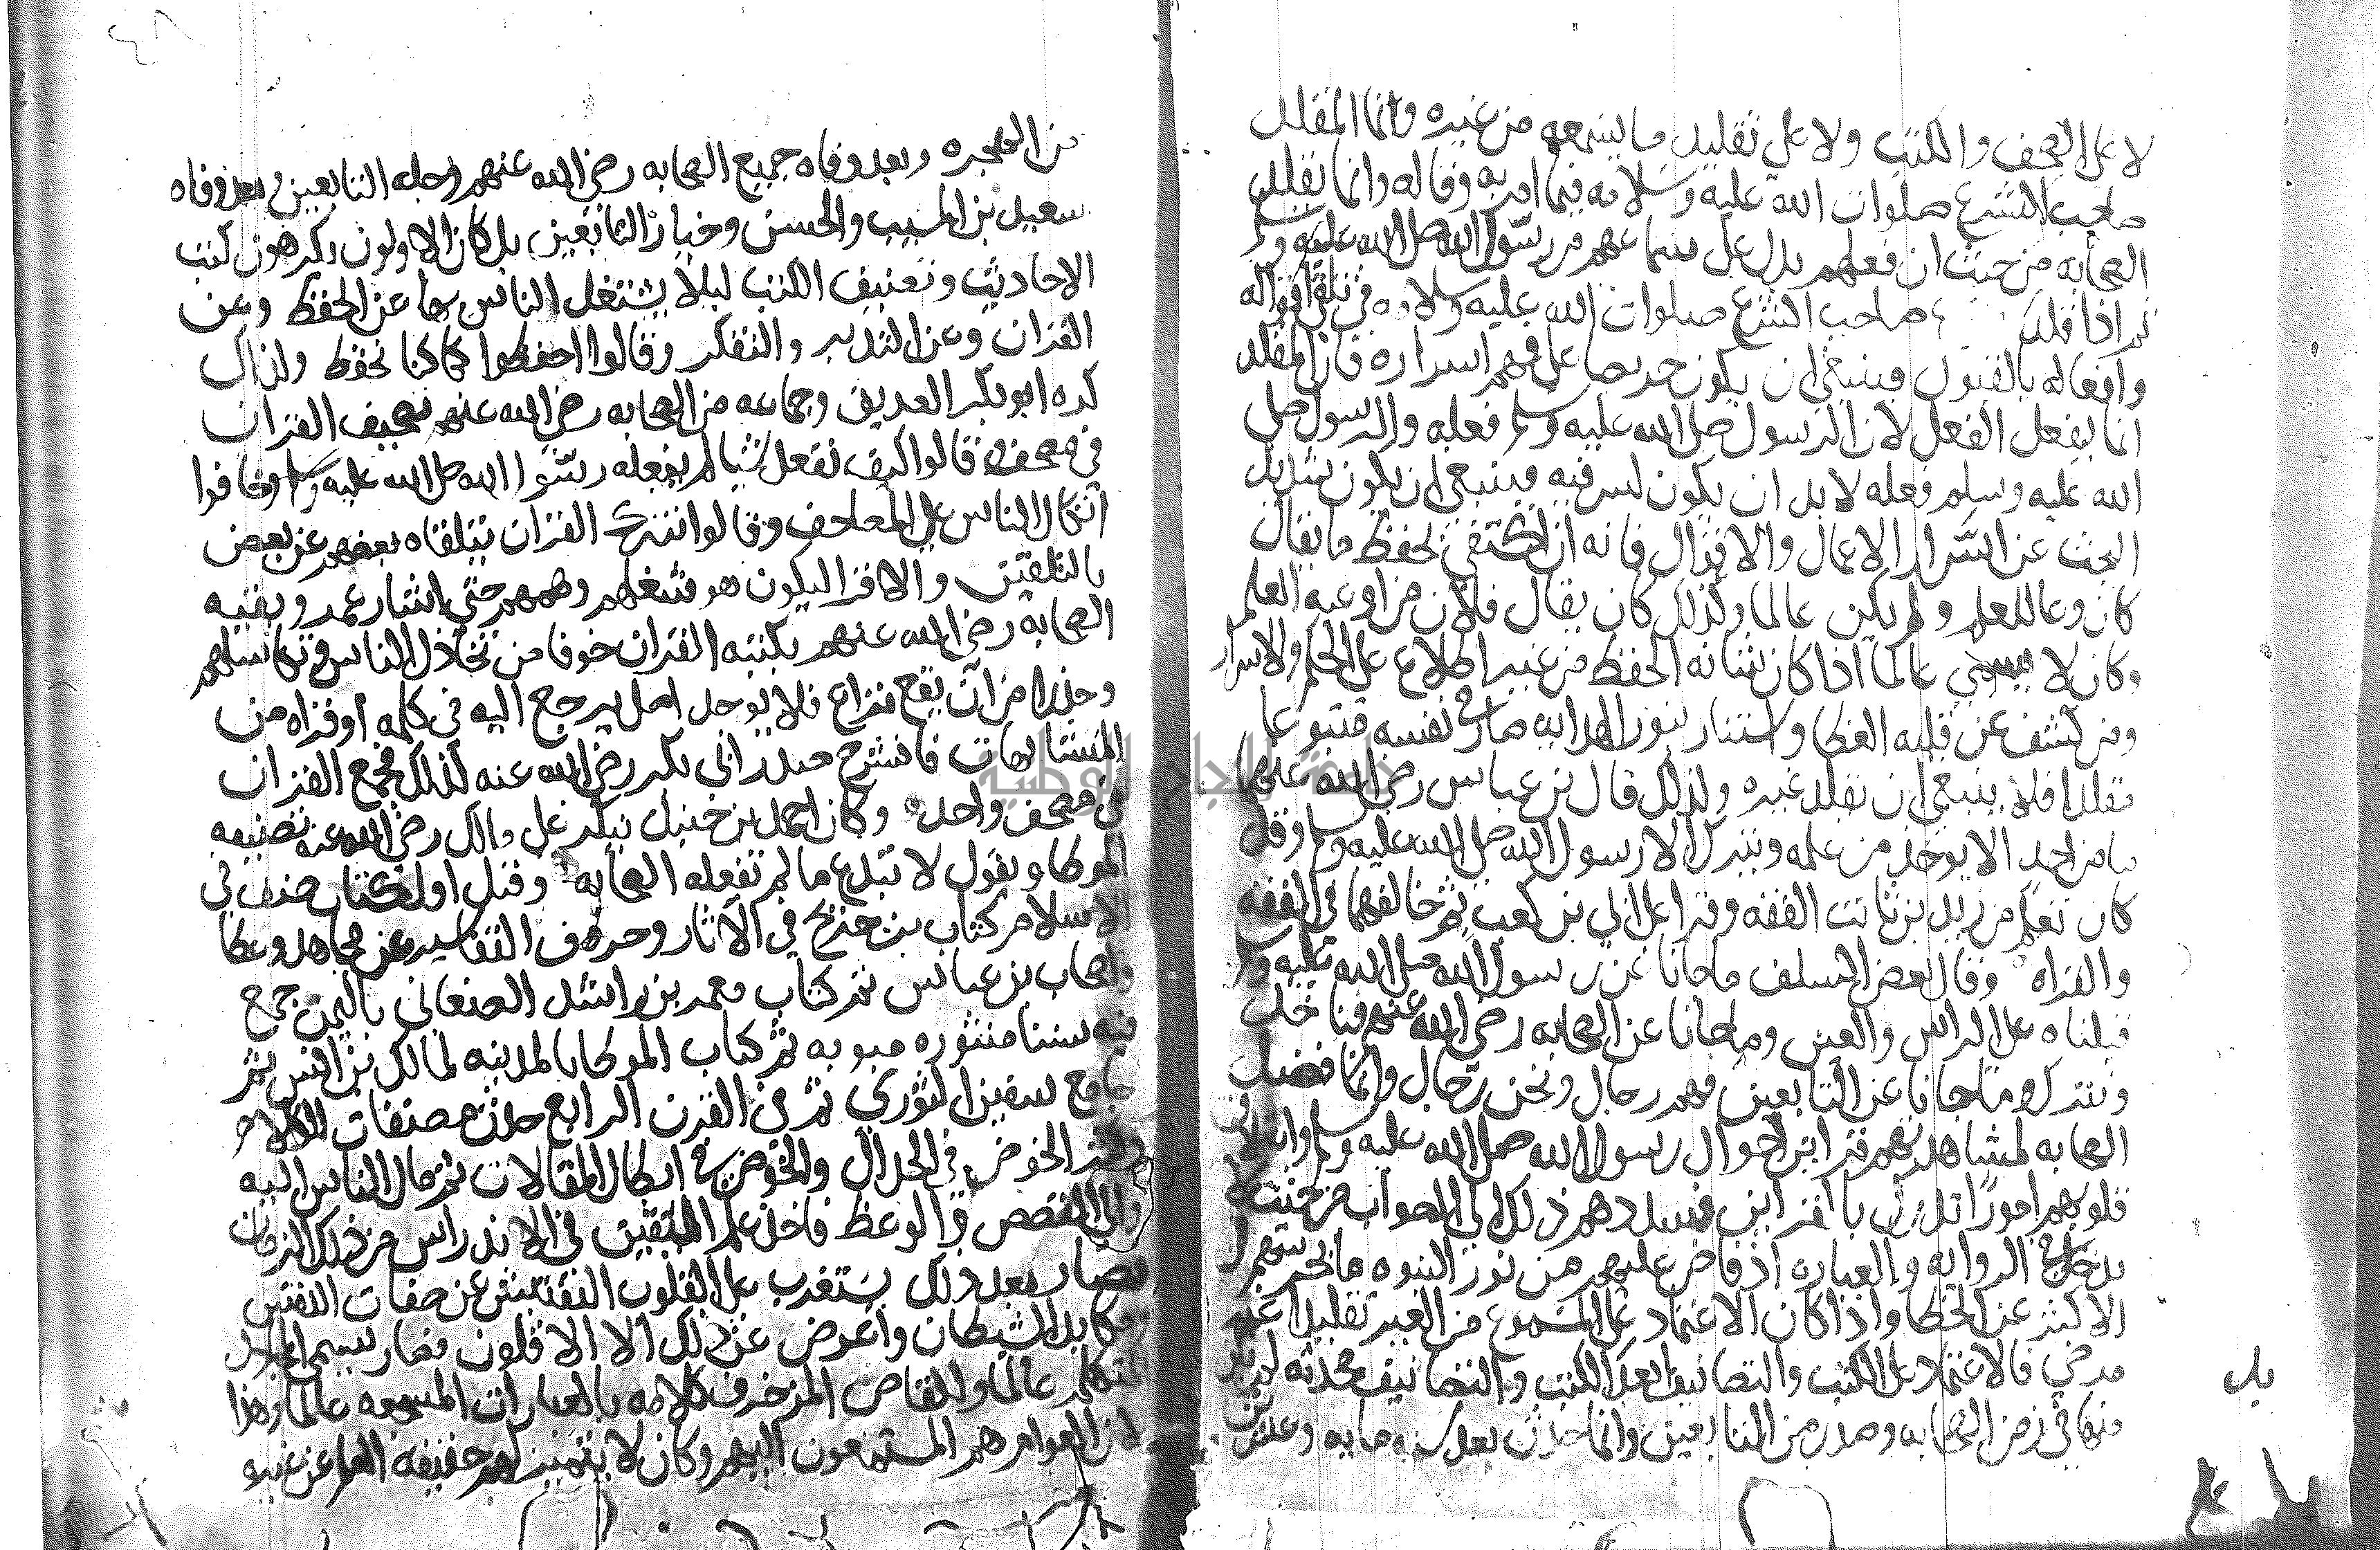 لا على الصحف والكتب ولا على تقليد ما يسمعه من غيره وانما المقلد
صاحب الشرع صلوات الله عليه وسلامه فيما امر به وقاله وانما يقلد
الصحابه من حيث ان فعلهم يدل على سماعهم من رسول الله صلى الله عليه وسلم
ثم اذا قلد صاحب الشرع صلوات الله عليه وسلامه في تلقي اقواله
وافعاله بالقبول فينبغي ان يكون حريصا على فهم اسراره فان المقلد
انما يفعل الفعل لان الرسول صلى الله عليه وسلم فعله والرسول صلى
الله عليه وسلم فعله لا بد ان يكون لسر فيه فينبغي ان يكون شديد
البحث عن اسرار الاعمال والاقوال فانه ان اكتفى بحفظ ما يقال
كان وعا للعلم ولم يكن عالما ولذلك كان يقال فلان من اوعيه العلم
وكان لا يسمي عالما اذا كان شانه الحفظ من غير اطلاع على الحكم والاسرار
ومن كشف عن قلبه الغطا واستنار بنور الهدايه صار في نفسه متبوعا
مقلدا فلا ينبغي ان يقلد غيره ولذلك قال بن عباس رضي الله عنهما
ما من احد الا يوخذ من علمه ويترك الا رسول الله صلى الله عليه وسلم وقد
كان تعلم من زيد بن ثابت الفقه وقرا على ابي بن كعب ثم خالفهما في الفقه
والقراه وقال بعض السلف ما جانا عن رسول الله صلى الله عليه وسلم
قبلناه على الراس والعين وما جانا عن الصحابه رضي الله عنهم فناخذ
ونترك وما جانا عن التابعين فهم رجال ونحن رجال وانما فضل
الصحابه لمشاهدتهم قراين احوال رسول الله صلى الله عليه وسلم واعتلاق
قلوبهم امورا تدرك بالقراين فسددهم ذلك الى الصواب من حيث لا
يدخل في الروايه والعباره اذ فاض عليهم من نور النبوه ما يحرسهم في
الاكثر عن الخطا واذا كان الاعتماد على المسموع من الغير تقليدا غير
مرضي فالاعتماد على الكتب والتصانيف ابعد بل الكتب والتصانيف محدثه لم يكن
منها في زمن الصحابه وصدر من التابعين وانما حدث بعد سنه مايه وعشرين
بل
من الهجره وبعد وفاه جميع الصحابه رضي الله عنهم وجله التابعين وبعد وفاه
سعيد بن المسيب والحسن وخيار التابعين بل كان الاولون يكرهون كتب
الاحاديث وتصنيف الكتب ليلا يشتغل الناس بها عن الحفظ وعن
القران وعن التدبر والتفكر وقالوا احفظوا كما كنا نحفظ ولذلك
كره ابو بكر الصديق وجماعه من الصحابه رضي الله عنهم تصحيف القران
في مصحف قالوا كيف نفعل شيا لم يفعله رسول الله صلى الله عليه وسلم وخافوا
اتكال الناس على المصاحف وقالوا نترك القران يتلقاه بعضهم عن بعض
بالتلقين والاقرا ليكون هو شغلهم وهمهم حتى اشار عمر وبقيه
الصحابه رضي الله عنهم بكتبه القران خوفا من تخاذل الناس وتكاسلهم
وحذرا من ان يقع نزاع فلا يوجد اصل يرجع اليه في كلمه او قراه من
المتشابهات فانشرح صدر ابي بكر رضي الله عنه لذلك فجمع القران
في مصحف واحد وكان احمد بن حنبل ينكر على مالك رضي الله عنه تصنيفه
الموطا ويقول لا تبتدع ما لم تفعله الصحابه وقيل اول كتاب صنف في
الاسلام كتاب بن جريج في الاثار وحروف التفاسير عن مجاهد وعطا
واصحاب بن عباس ثم كتاب معمر بن راشد الصنعاني باليمن جمع
فيه سننا منثوره مبوبه ثم كتاب الموطا بالمدينه لمالك بن انس ثم
جامع سفين الثوري ثم في القرن الرابع حدث مصنفات الكلام
وكثر الخوض في الجدال والخوض في ابطال المقالات ثم مال الناس اليه
والى القصص والوعظ فاخذ علم اليقين في الاندراس من ذلك الزمان
فصار بعد ذلك يستغرب علم القلوب التفتيش عن صفات النفس
ومكايد الشيطان واعرض عن ذلك الا الاقلون فصار يسمى المجادل
المتكلم عالما والقاص المزخرف كلامه بالعبارات المسجعه عالما وهذا
لان العوام هم المستمعون اليهم وكان لا يتميز لهم حقيقه العلم عن غيره
جامعة النجاح الوطنية